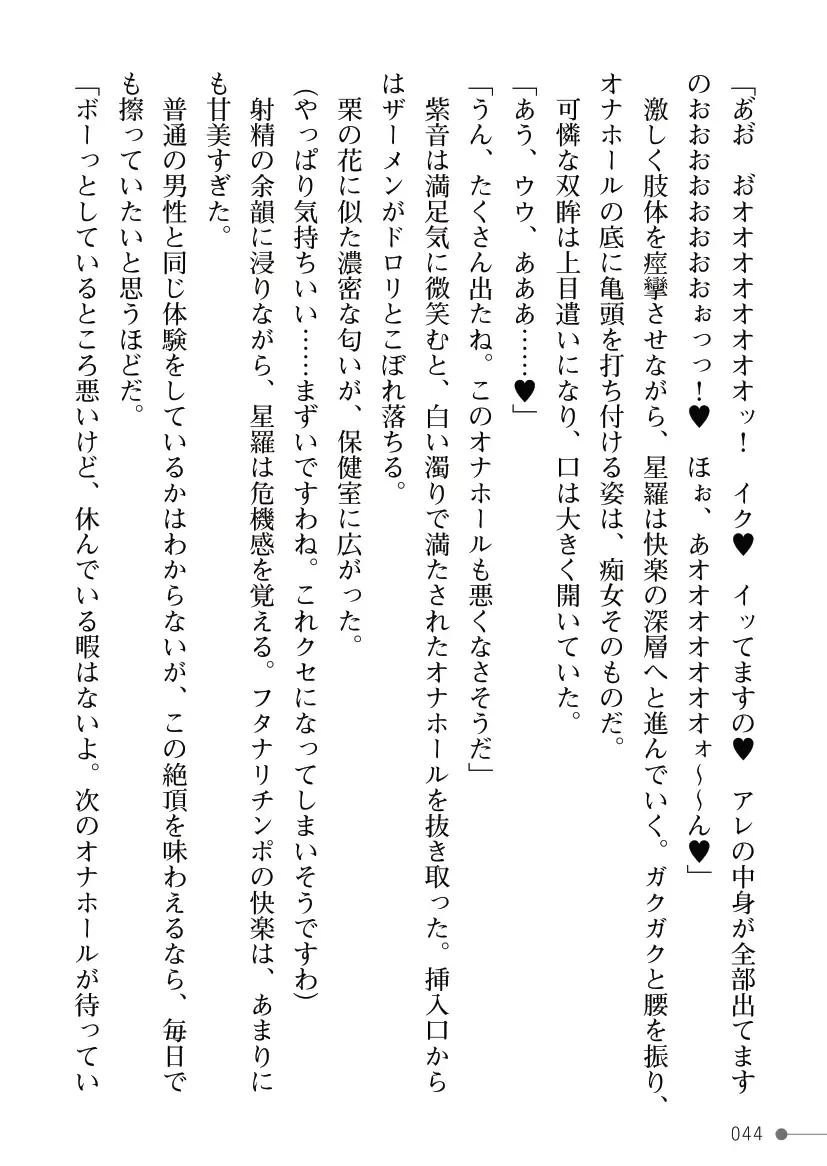 「あ゙お゙　お゙オオオオオオオッ！　イク♥　イッてますの♥　アレの中身が全部出てます
のおおおおおおおおぉっっ！♥　ほぉ、あオオオオオオオォ～～ん♥」
　激しく肢体を痙攣させながら、星羅は快楽の深層へと進んでいく。ガクガクと腰を振り、
オナホールの底に亀頭を打ち付ける姿は、痴女そのものだ。
　可憐な双眸は上目遣いになり、口は大きく開いていた。
「あう、ウウ、あああ……♥」
「うん、たくさん出たね。このオナホールも悪くなさそうだ」
　紫音は満足気に微笑むと、白い濁りで満たされたオナホールを抜き取った。挿入口から
はザーメンがドロリとこぼれ落ちる。
　栗の花に似た濃密な匂いが、保健室に広がった。
(やっぱり気持ちいい……まずいですわね。これクセになってしまいそうですわ)
　射精の余韻に浸りながら、星羅は危機感を覚える。フタナリチンポの快楽は、あまりに
も甘美すぎた。
　普通の男性と同じ体験をしているかはわからないが、この絶頂を味わえるなら、毎日で
も擦っていたいと思うほどだ。
「ボーっとしているところ悪いけど、休んでいる暇はないよ。次のオナホールが待ってい
044